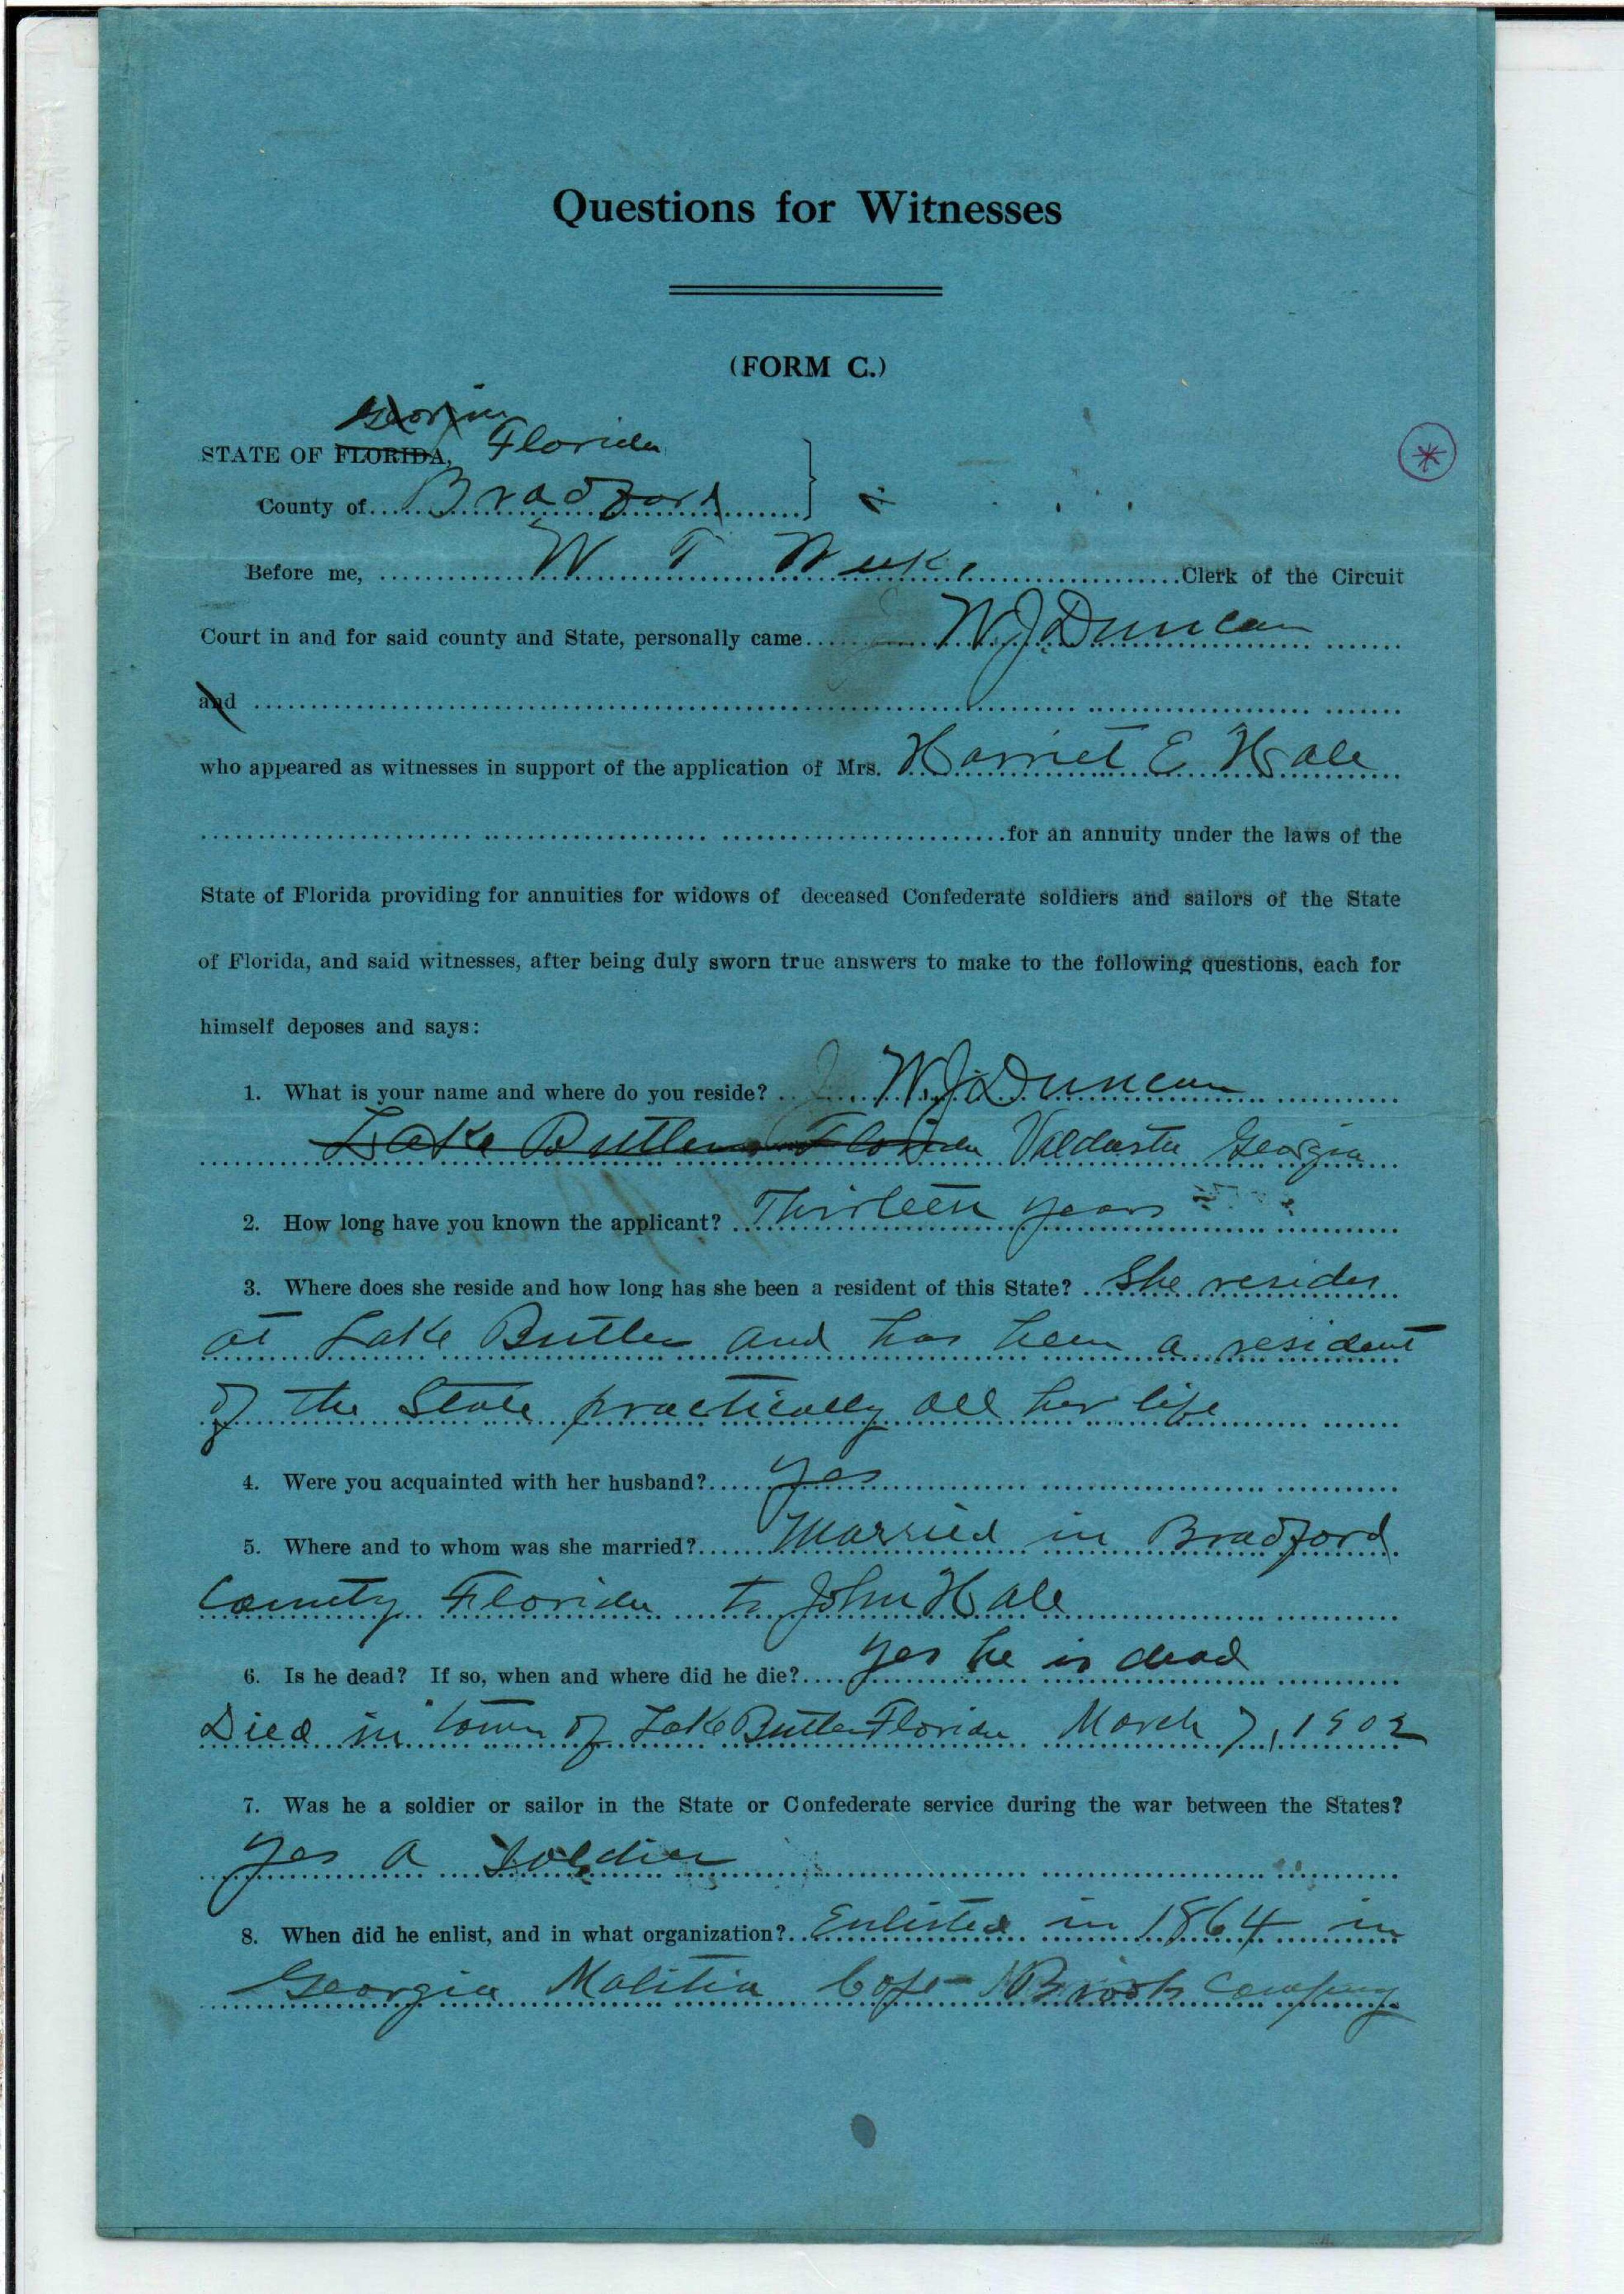 Questions for Witnesses
(FORM C.)
Georgia
STATE OF FLORIDA, Florida
County of Bradford
Before me, W T Weeks Clerk of the Circuit
Court in and for said county and State, personally came W J Duncan
and
who appeared as witnesses in support of the application of Mrs. Harriet E Hale
for an annuity under the laws of the
State of Florida providing for annuities for widows of deceased Confederate soldiers and sailors of the State
of Florida, and said witnesses, after being duly sworn true answers to make to the following questions, each for
himself deposes and says:
1. What is your name and where do you reside? W. J. Duncan
Lake Butler Florida Valdosta Georgia
2. How long have you known the applicant? Thirteen years
3. Where does she reside and how long has she been a resident of this State? She resides
at Lake Butler and has been a resident
of the State practically all her life
4. Were you acquainted with her husband? Yes
5. Where and to whom was she married? Married in Bradford
County Florida to John Hale
6. Is he dead? If so, when and where did he die? Yes he is dead
Died in town of Lake Butler Florida March 7, 1902
7. Was he a soldier or sailor in the State or Confederate service during the war between the States?
Yes a Soldier
8. When did he enlist, and in what organization? Enlisted in 1864 in
Georgia Malitia Capt Company